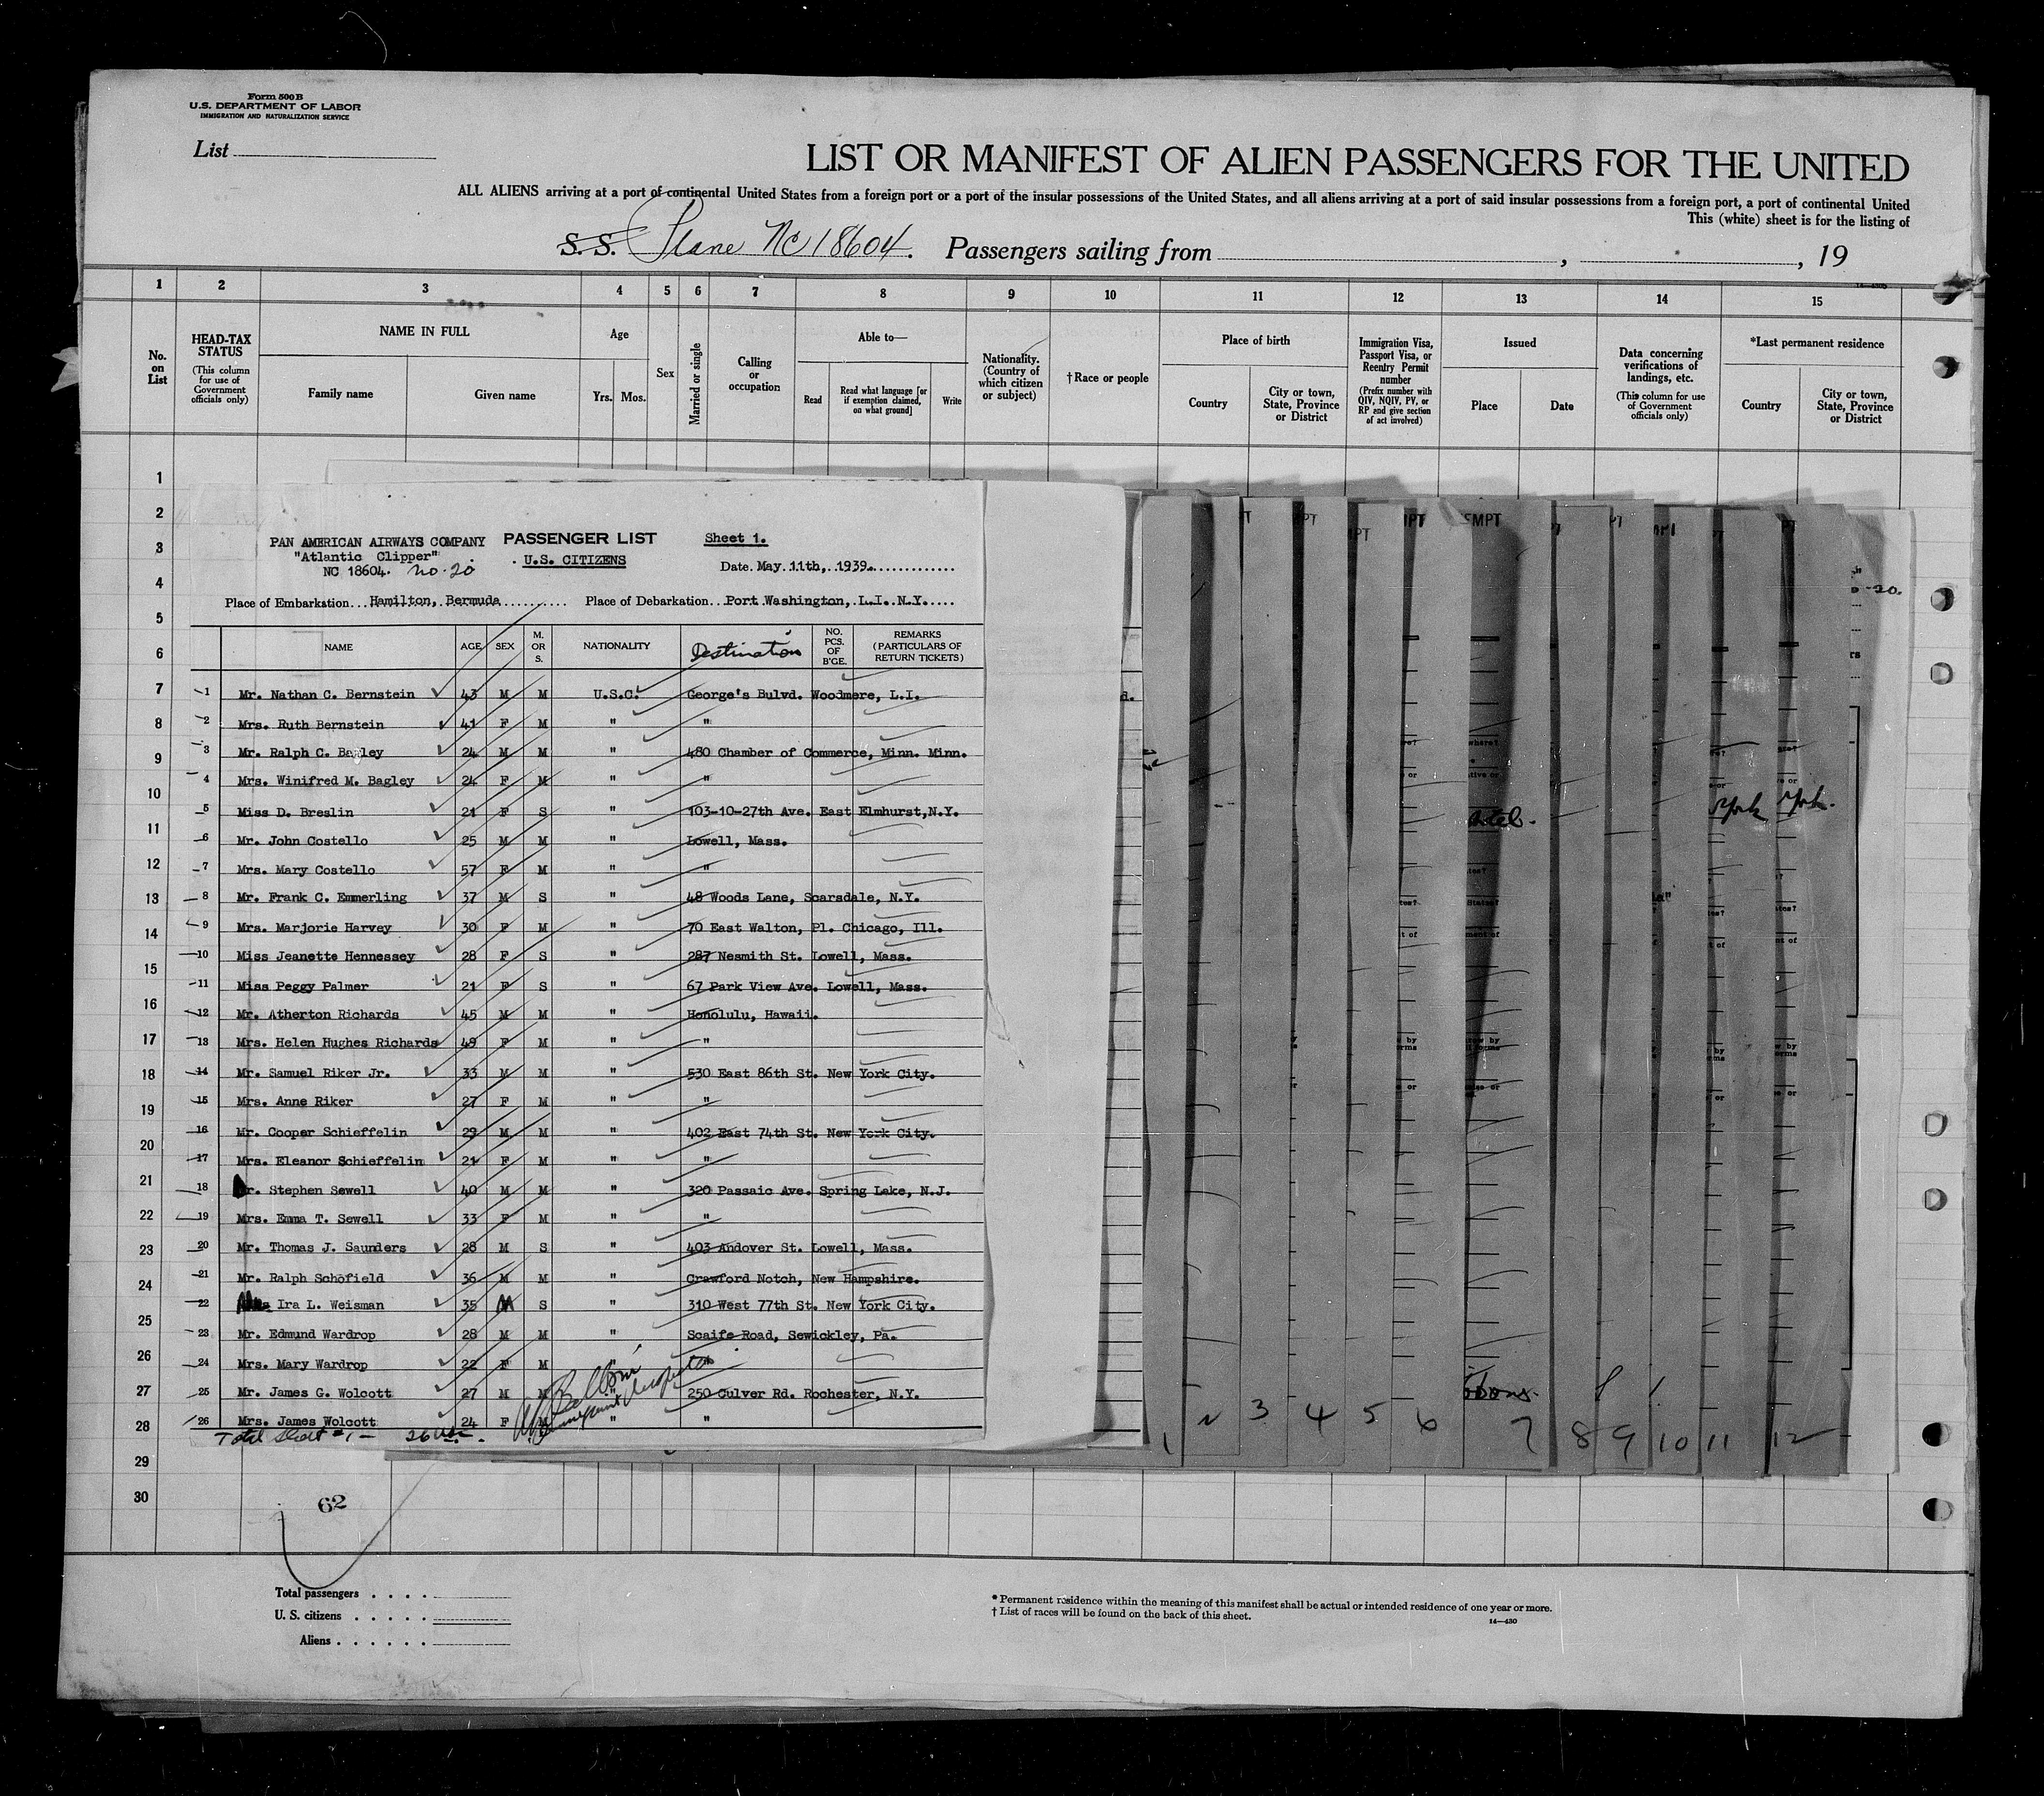 Form 500 B
U.S. DEPARTMENT OF LABOR
IMMIGRATION AND NATURALIZATION SERVICE
List
LIST OR MANIFEST OF ALIEN PASSENGERS FOR THE UNITED
ALL ALIENS arriving at a port of continental United States from a foreign port or a port of the insular possessions of the United States, and all aliens arriving at a port of said insular possessions from a foreign port, a port of continental United
This (white) sheet is for the listing of
S.S. Plane NC 18604. Passengers sailing from , , 19
14—430b
1 2 3 4 5 6 7 8 9 10 11 12 13 14 15
No. on List
HEAD-TAX STATUS (This column for use of Government officials only)
NAME IN FULL
Family name Given name
Age
Yrs. Mos.
Sex
Married or single
Calling or occupation
Able to—
Read Read what language [or if exemption claimed, on what ground] Write
Nationality. (Country of which citizen or subject)
†Race or people
Place of birth
Country City or town, State, Province or District
Immigration Visa, Passport Visa, or Reentry Permit number (Prefix number with QIV, NQIV, PV, or RP and give section of act involved)
Issued
Place Date
Data concerning verifications of landings, etc. (This column for use of Government officials only)
*Last permanent residence
Country City or town, State, Province or District
1
2
3
4
5
6
7
8
9
10
11
12
13
14
15
16
17
18
19
20
21
22
23
24
25
26
27
28
29
30
PAN AMERICAN AIRWAYS COMPANY PASSENGER LIST Sheet 1.
"Atlantic Clipper" U.S. CITIZENS
NC 18604. No. 20 Date. May 11th, 1939.
Place of Embarkation Hamilton, Bermuda Place of Debarkation Port Washington, L.I. N.Y.
NAME AGE SEX M. OR S. NATIONALITY Destination NO. PCS. OF B'GE. REMARKS (PARTICULARS OF RETURN TICKETS)
1 Mr. Nathan C. Bernstein 43 M M U.S.C. George's Bulvd. Woodmere, L.I.
2 Mrs. Ruth Bernstein 41 F M " "
3 Mr. Ralph C. Bagley 24 M M " 480 Chamber of Commerce, Minn. Minn.
4 Mrs. Winifred M. Bagley 24 F M " "
5 Miss D. Breslin 21 F S " 103-10-27th Ave. East Elmhurst,N.Y.
6 Mr. John Costello 25 M M " Lowell, Mass.
7 Mrs. Mary Costello 57 F M " "
8 Mr. Frank C. Emmerling 37 M S " 48 Woods Lane, Scarsdale, N.Y.
9 Mrs. Marjorie Harvey 30 F M " 70 East Walton, Pl. Chicago, Ill.
10 Miss Jeanette Hennessey 28 F S " 287 Nesmith St. Lowell, Mass.
11 Miss Peggy Palmer 21 F S " 67 Park View Ave. Lowell, Mass.
12 Mr. Atherton Richards 45 M M " Honolulu, Hawaii.
13 Mrs. Helen Hughes Richards 49 F M " "
14 Mr. Samuel Riker Jr. 33 M M " 530 East 86th St. New York City.
15 Mrs. Anne Riker 27 F M " "
16 Mr. Cooper Schieffelin 29 M M " 402 East 74th St. New York City.
17 Mrs. Eleanor Schieffelin 21 F M " "
18 Mr. Stephen Sewell 40 M M " 320 Passaic Ave. Spring Lake, N.J.
19 Mrs. Emma T. Sewell 33 F M " "
20 Mr. Thomas J. Saunders 28 M S " 403 Andover St. Lowell, Mass.
21 Mr. Ralph Schofield 36 M M " Crawford Notch, New Hampshire.
22 Ira L. Weisman 35 M S " 310 West 77th St. New York City.
23 Mr. Edmund Wardrop 28 M M " Scaife Road, Sewickley, Pa.
24 Mrs. Mary Wardrop 22 F M " "
25 Mr. James G. Wolcott 27 M M " 250 Culver Rd. Rochester, N.Y.
26 Mrs. James Wolcott 24 F M " "
Total Sheet #1 — 26
York York.
3 4 5 6 7 8 9 10 11 12
62
Total passengers
U. S. citizens
Aliens
* Permanent residence within the meaning of this manifest shall be actual or intended residence of one year or more.
† List of races will be found on the back of this sheet.
14—430